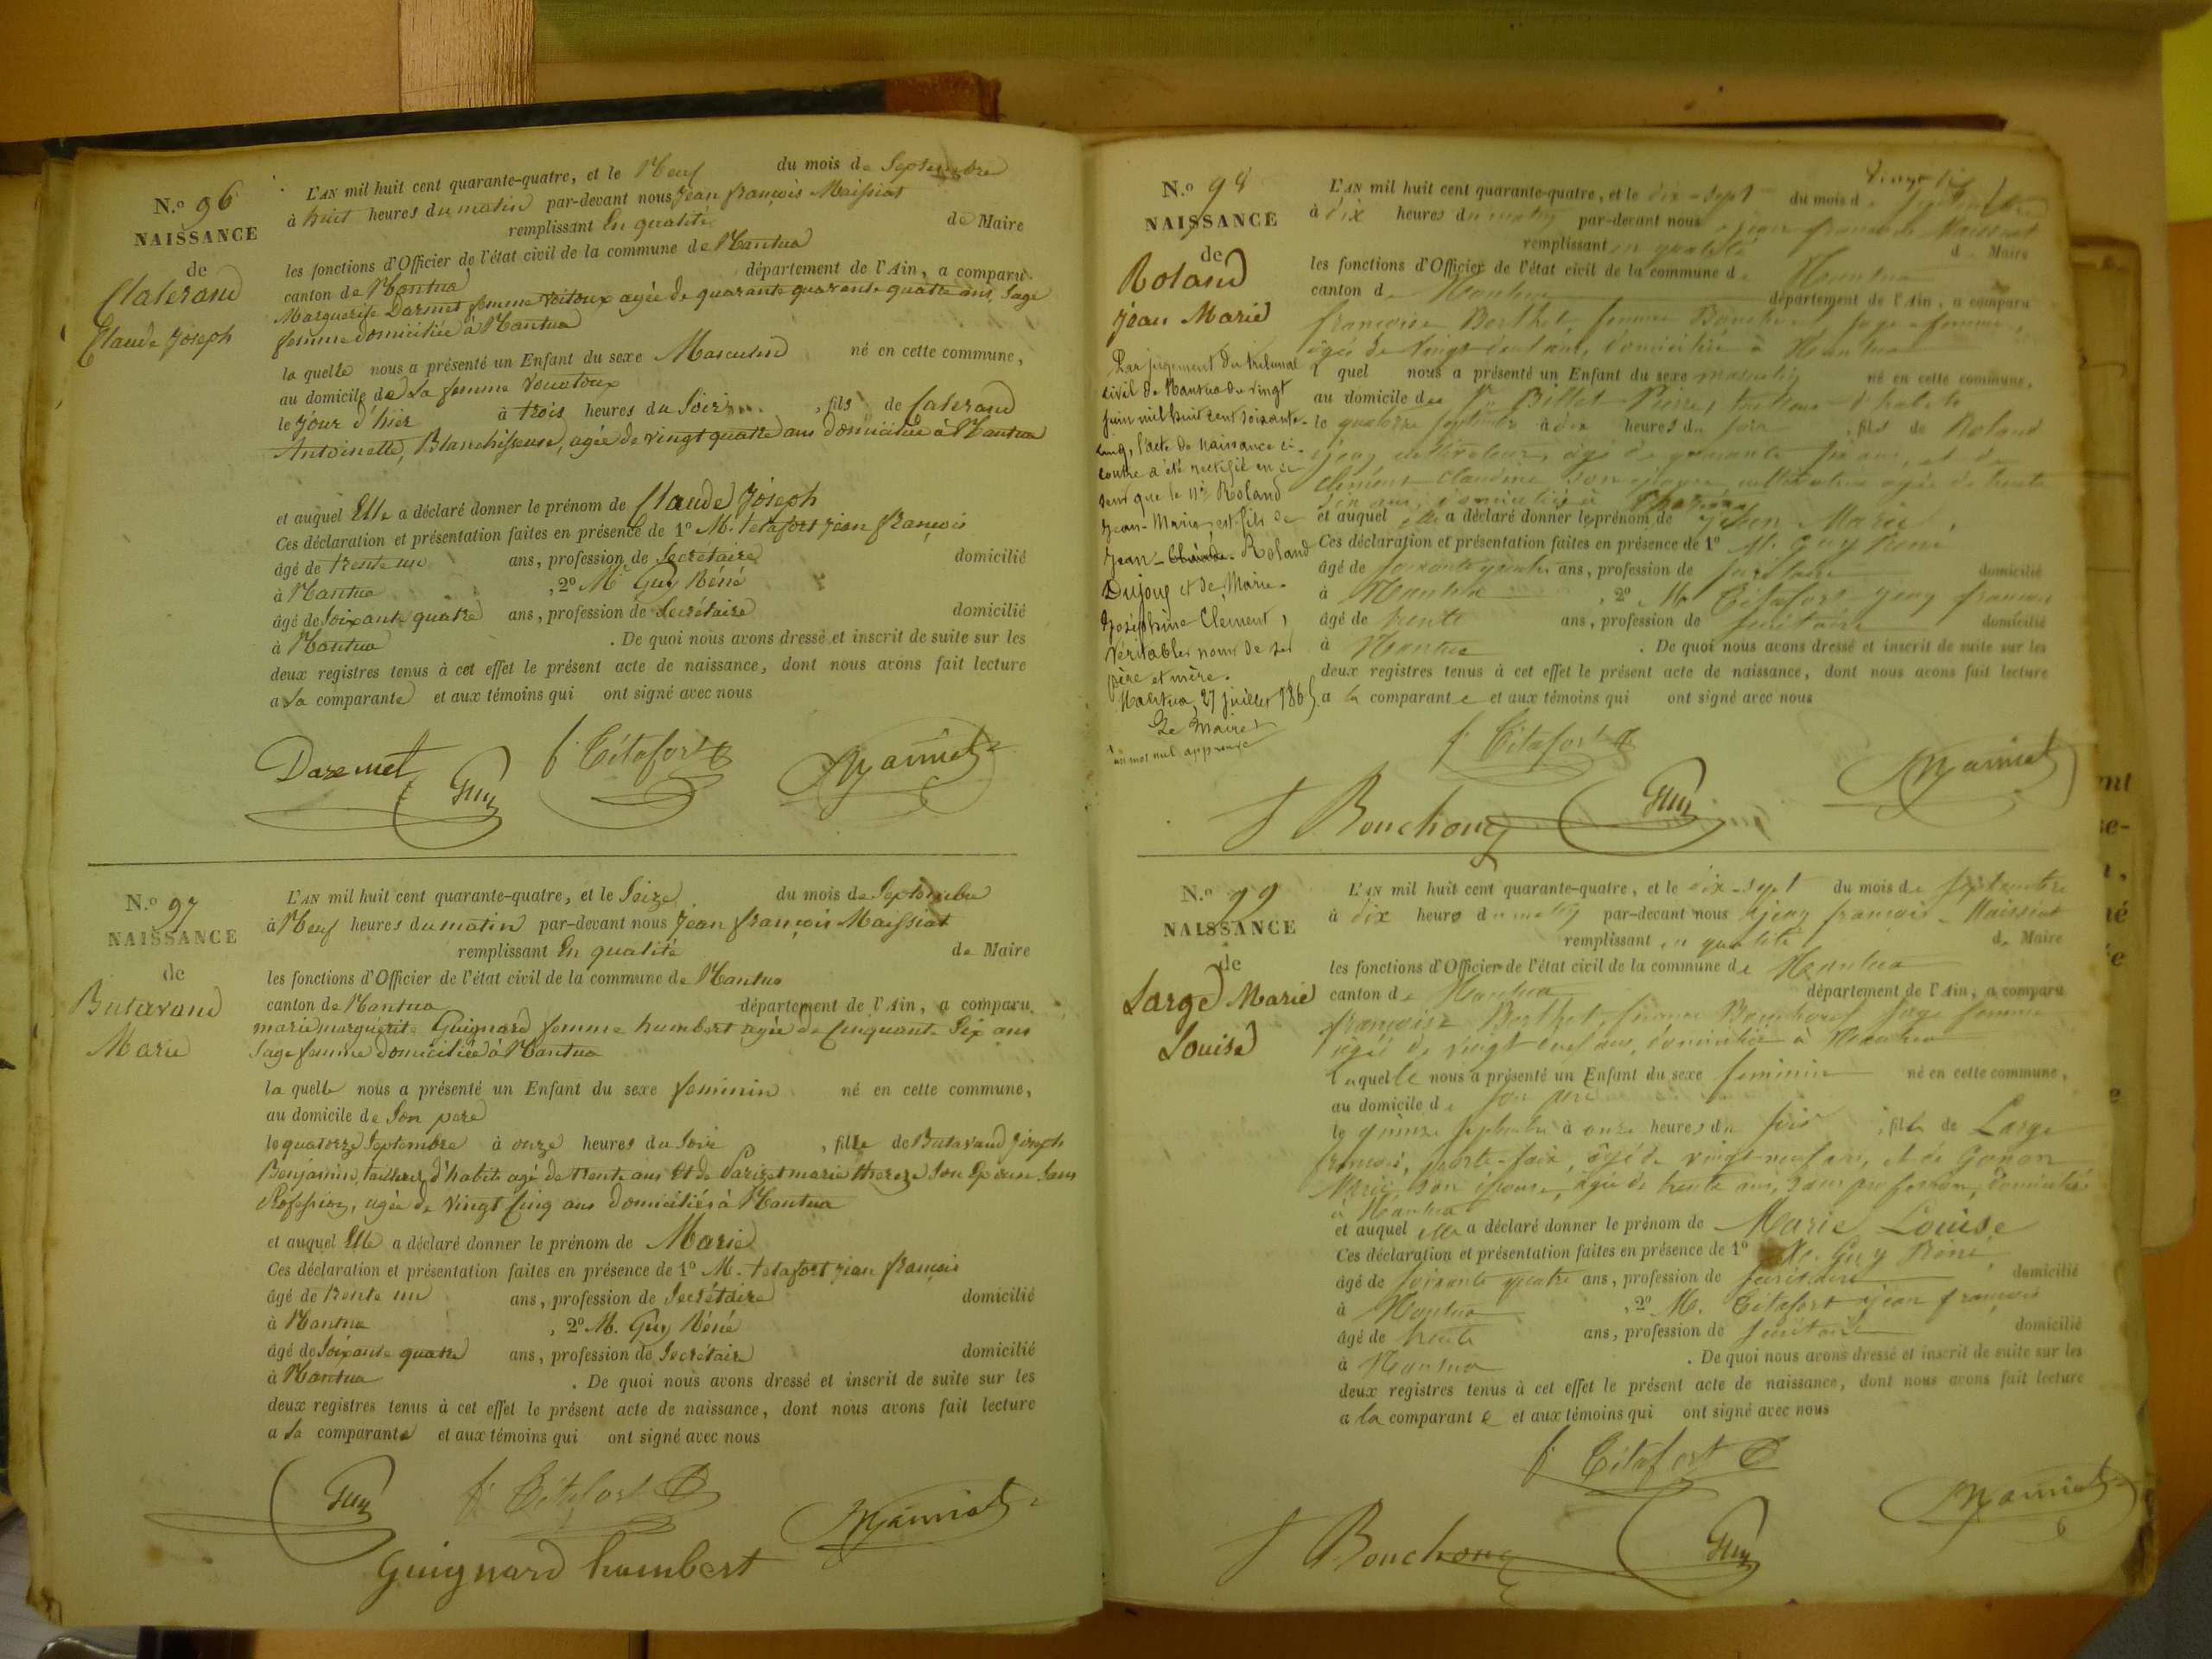 N.º 96
NAISSANCE
de
Claude Joseph
L'AN mil huit cent quarante-quatre, et le Neuf du mois de Septembre
à huit heures du matin par-devant nous Jean françois Maissiat
remplissant En qualité de Maire
les fonctions d'Officier de l'état civil de la commune de Nantua
canton de Nantua département de l'Ain, a comparu
Marguerite femme agée de quarante quatre ans, Sage
femme domiciliée à Nantua
la quelle nous a présenté un Enfant du sexe Masculin né en cette commune,
au domicile de La femme
le Jour d'hier à trois heures du Soir, fils de
Antoinette, Blanchisseuse, agée de vingt quatre ans domiciliée à Nantua
et auquel Elle a déclaré donner le prénom de Claude Joseph
Ces déclaration et présentation faites en présence de 1º M. tetafort jean françois
âgé de trente un ans, profession de Secretaire domicilié
à Nantua, 2º Mr Guy Réné
âgé de Soixante quatre ans, profession de Secrétaire domicilié
à Nantua. De quoi nous avons dressé et inscrit de suite sur les
deux registres tenus à cet effet le présent acte de naissance, dont nous avons fait lecture
a La comparante et aux témoins qui ont signé avec nous
Guy
N.º 97
NAISSANCE
de
Butavand
Marie
L'AN mil huit cent quarante-quatre, et le Seize du mois de Septembre
à Neuf heures du matin par-devant nous Jean françois Maissiat
remplissant En qualité de Maire
les fonctions d'Officier de l'état civil de la commune de Nantua
canton de Nantua département de l'Ain, a comparu
marie marguerite Guignard femme humbert agée de Cinquante Six ans
Sage femme domiciliée à Nantua
la quelle nous a présenté un Enfant du sexe feminin né en cette commune,
au domicile de Son pere
le quatorze Septembre à onze heures du Soir, fille de Butavand Joseph
Benjamin, tailleur d'habits agé de trente ans Et de marie thereze Son Epouse Sans
Profession, agée de vingt Cinq ans domiciliés à Nantua
et auquel Elle a déclaré donner le prénom de Marie
Ces déclaration et présentation faites en présence de 1º M. tetafort jean françois
âgé de trente un ans, profession de Secrétaire domicilié
à Nantua, 2º M. Guy Réné
âgé de Soixante quatre ans, profession de Secrétaire domicilié
à Nantua. De quoi nous avons dressé et inscrit de suite sur les
deux registres tenus à cet effet le présent acte de naissance, dont nous avons fait lecture
a La comparante et aux témoins qui ont signé avec nous
Guy
Guignard humbert
N.º 98
NAISSANCE
de
Roland
Jean Marie
Par jugement du tribunal
civil de Nantua du vingt
juin mil huit cent soixante-
cinq, l'acte de naissance ci-
contre a été rectifié en ce
sens que le né Roland
Jean-Marie, est fils de
Jean-Claude Roland
Dujoug et de Marie-
Joséphine Clement,
véritables noms de ses
père et mère.
Nantua, 27 juillet 1865.
Le Maire
un mot nul approuvé
L'AN mil huit cent quarante-quatre, et le dix-sept du mois de Septembre
à dix heures du matin par-devant nous jean françois Maissiat
remplissant en qualité de Maire
les fonctions d'Officier de l'état civil de la commune de Nantua
canton de Nantua département de l'Ain, a comparu
françoise Berthet, femme sage femme,
agée de vingt neuf ans, domiciliée à Nantua
l quel nous a présenté un Enfant du sexe masculin né en cette commune,
au domicile de Billet Pierre, tailleur d'habits
le quatorze septembre à dix heures du soir, fils de Roland
jean, cultivateur, âgé de quarante ans, et de
Clément Claudine son épouse, cultivatrice agée de trente
six ans, domiciliés à
et auquel elle a déclaré donner le prénom de Jean Marie,
Ces déclaration et présentation faites en présence de 1º M. Guy Réné
âgé de soixante quatre ans, profession de secrétaire domicilié
à Nantua, 2º M. Tétafort jean françois
âgé de trente ans, profession de secrétaire domicilié
à Nantua. De quoi nous avons dressé et inscrit de suite sur les
deux registres tenus à cet effet le présent acte de naissance, dont nous avons fait lecture
a la comparante et aux témoins qui ont signé avec nous
Guy
N.º 99
NAISSANCE
de
Large Marie
Louise
L'AN mil huit cent quarante-quatre, et le dix-sept du mois de septembre
à dix heures du matin par-devant nous jean françois Maissiat
remplissant en qualité de Maire
les fonctions d'Officier de l'état civil de la commune de Nantua
canton de Nantua département de l'Ain, a comparu
françoise Berthet femme sage femme
agée de vingt neuf ans, domiciliée à Nantua
laquelle nous a présenté un Enfant du sexe feminin né en cette commune,
au domicile de son père
le quinze septembre à onze heures du soir, fille de Large
françois, porte-faix, âgé de vingt-neuf ans, et de
Marie, son épouse, agée de trente ans, sans profession, domiciliés
à Nantua
et auquel elle a déclaré donner le prénom de Marie Louise
Ces déclaration et présentation faites en présence de 1º M. Guy Réné
âgé de soixante quatre ans, profession de secrétaire domicilié
à Nantua, 2º M. Tétafort jean françois
âgé de trente ans, profession de secrétaire domicilié
à Nantua. De quoi nous avons dressé et inscrit de suite sur les
deux registres tenus à cet effet le présent acte de naissance, dont nous avons fait lecture
a la comparante et aux témoins qui ont signé avec nous
Guy